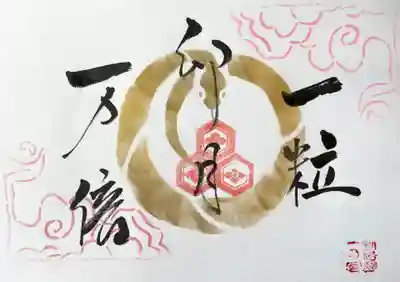 一粒
卯月
一万倍